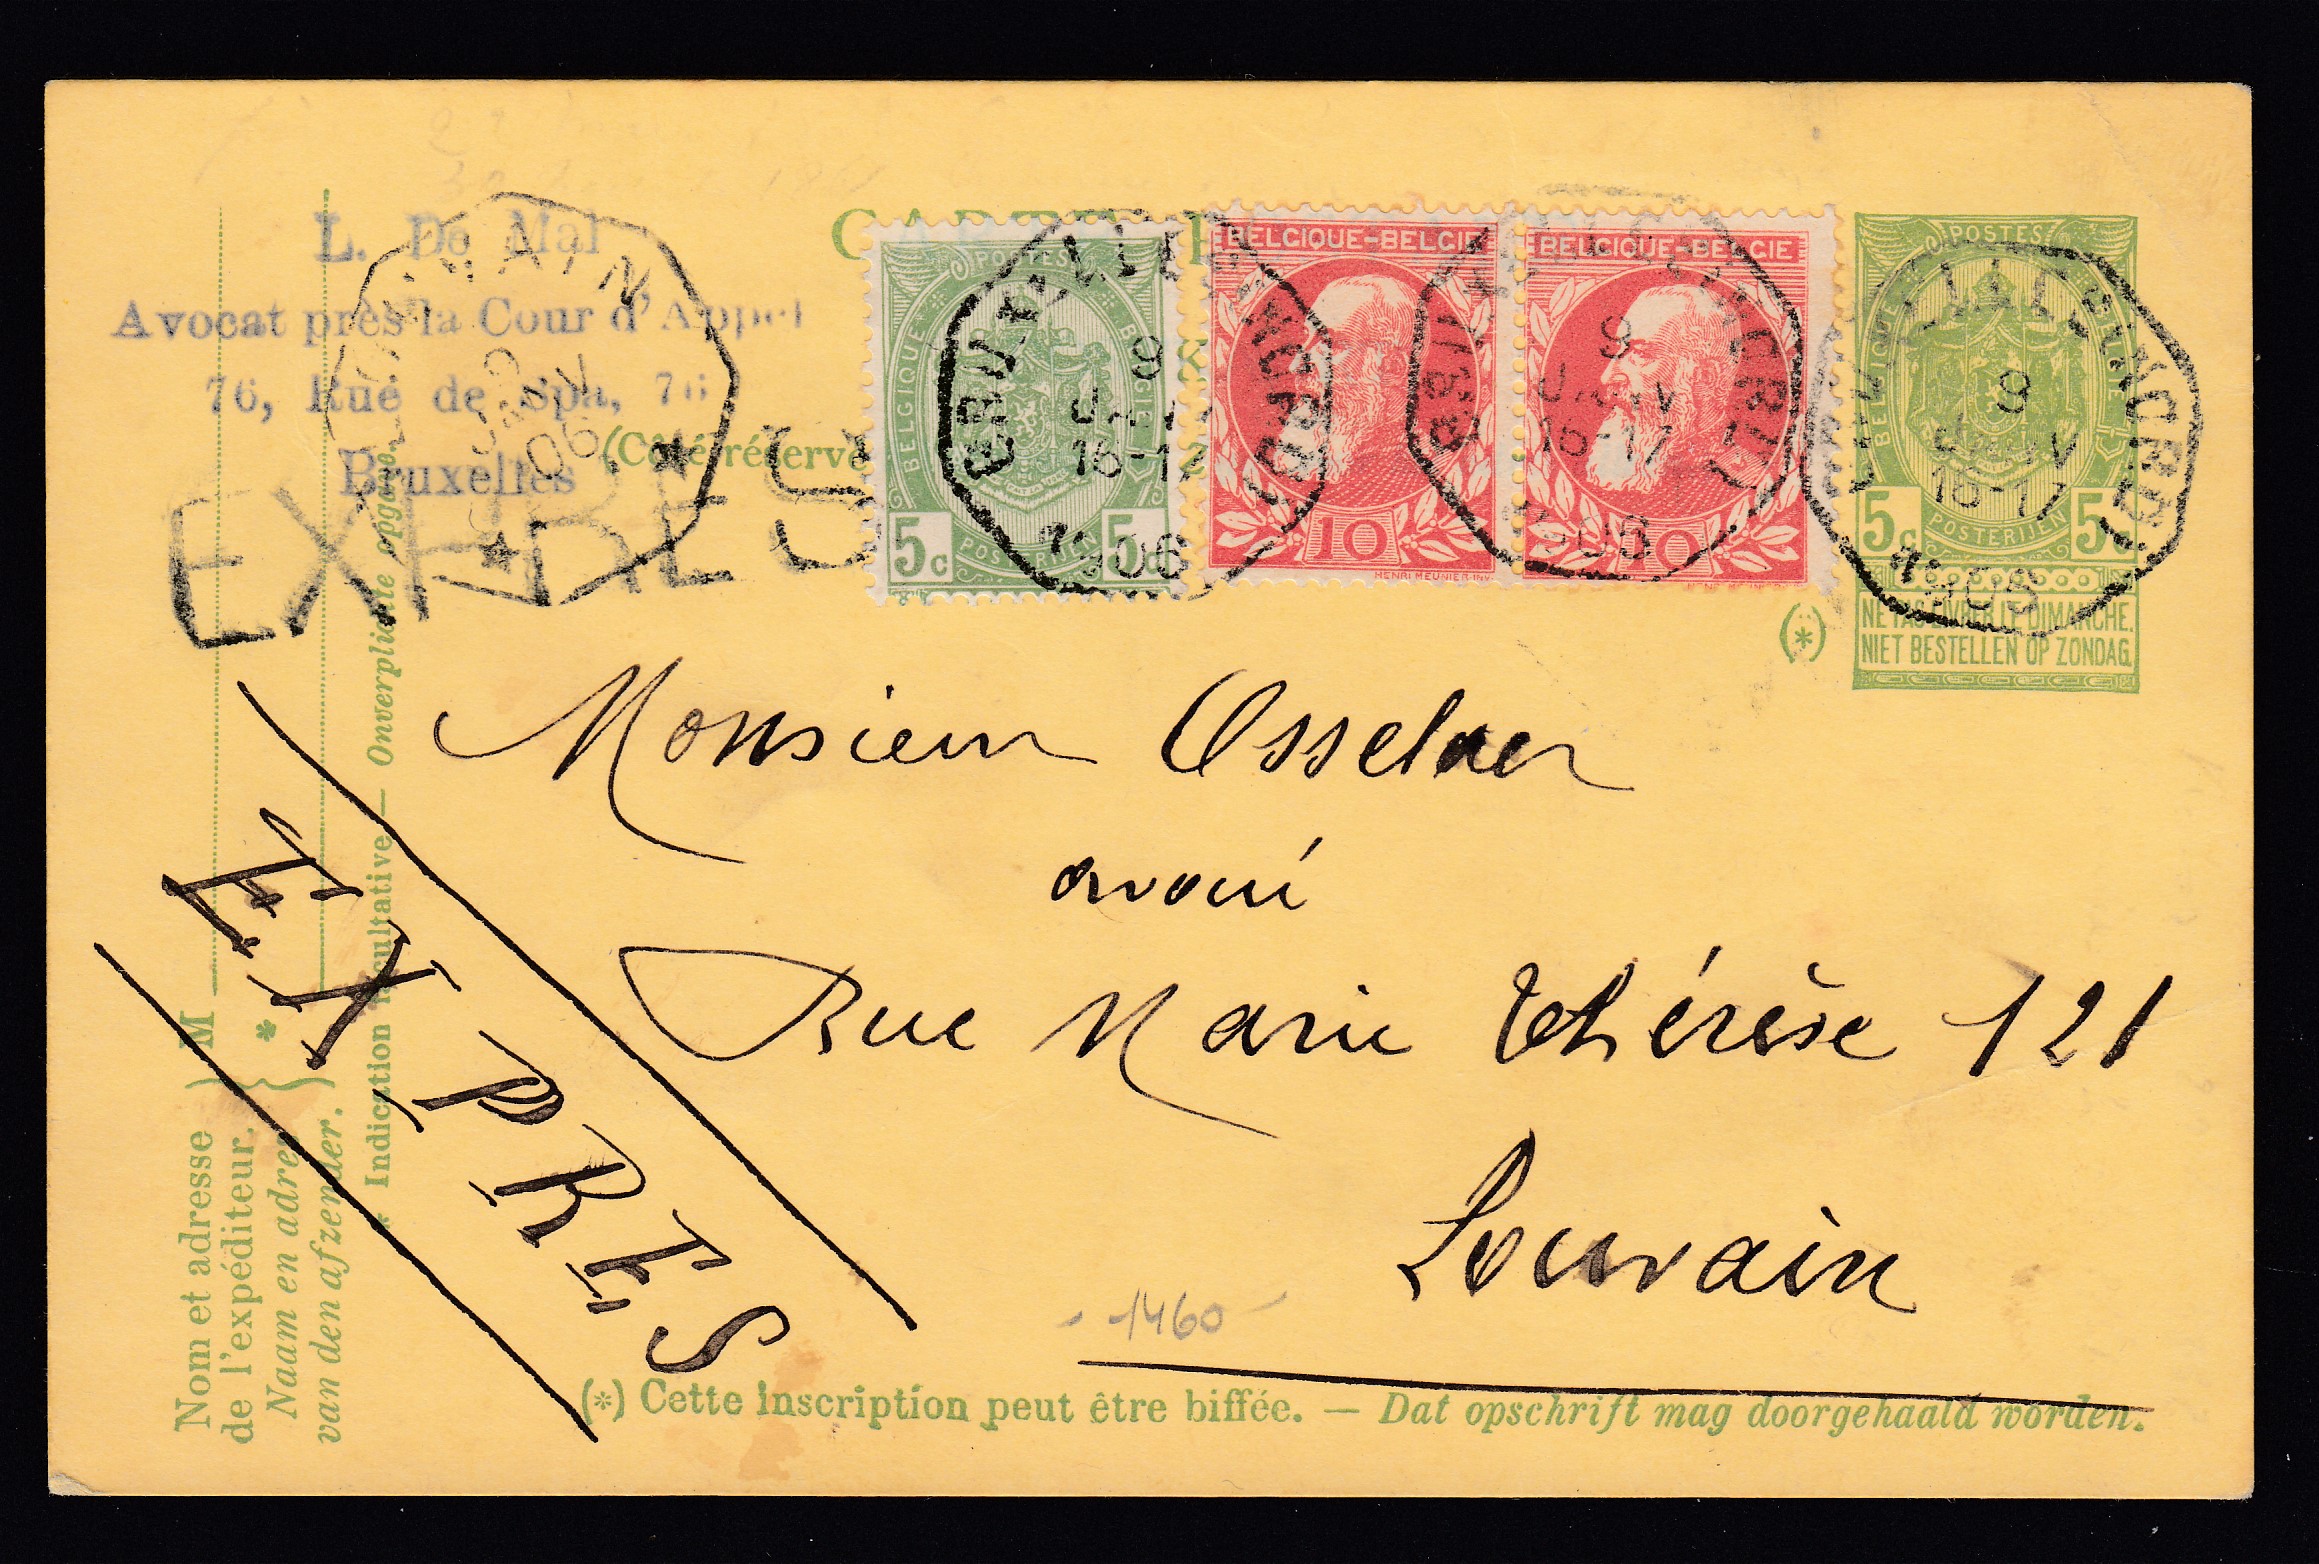 L. De Mal
Avocat près la Cour d'Appel
76, Rue de Spa, 76
Bruxelles
EXPRES
(Côté réservé
POSTES
BELGIQUE
BELGIË
5c 5c
POSTERIJEN
BELGIQUE-BELGIE
10
HENRI MEUNIER-INV.
BELGIQUE-BELGIE
10
POSTES
BELGIQUE
BELGIË
5c 5c
POSTERIJEN
NE PAS LIVRER LE DIMANCHE.
NIET BESTELLEN OP ZONDAG.
(*)
9
JANV
16-17
1906
9
JANV
16-17
1906
9
JANV
16-17
1906
Monsieur
avoué
Rue Marie Thérèse 121
Louvain
EXPRES
1460
Nom et adresse
de l'expéditeur. } M
Naam en adres
van den afzender. } *
* Indication facultative — Onverplichte opgave.
(*) Cette inscription peut être biffée. — Dat opschrift mag doorgehaald worden.